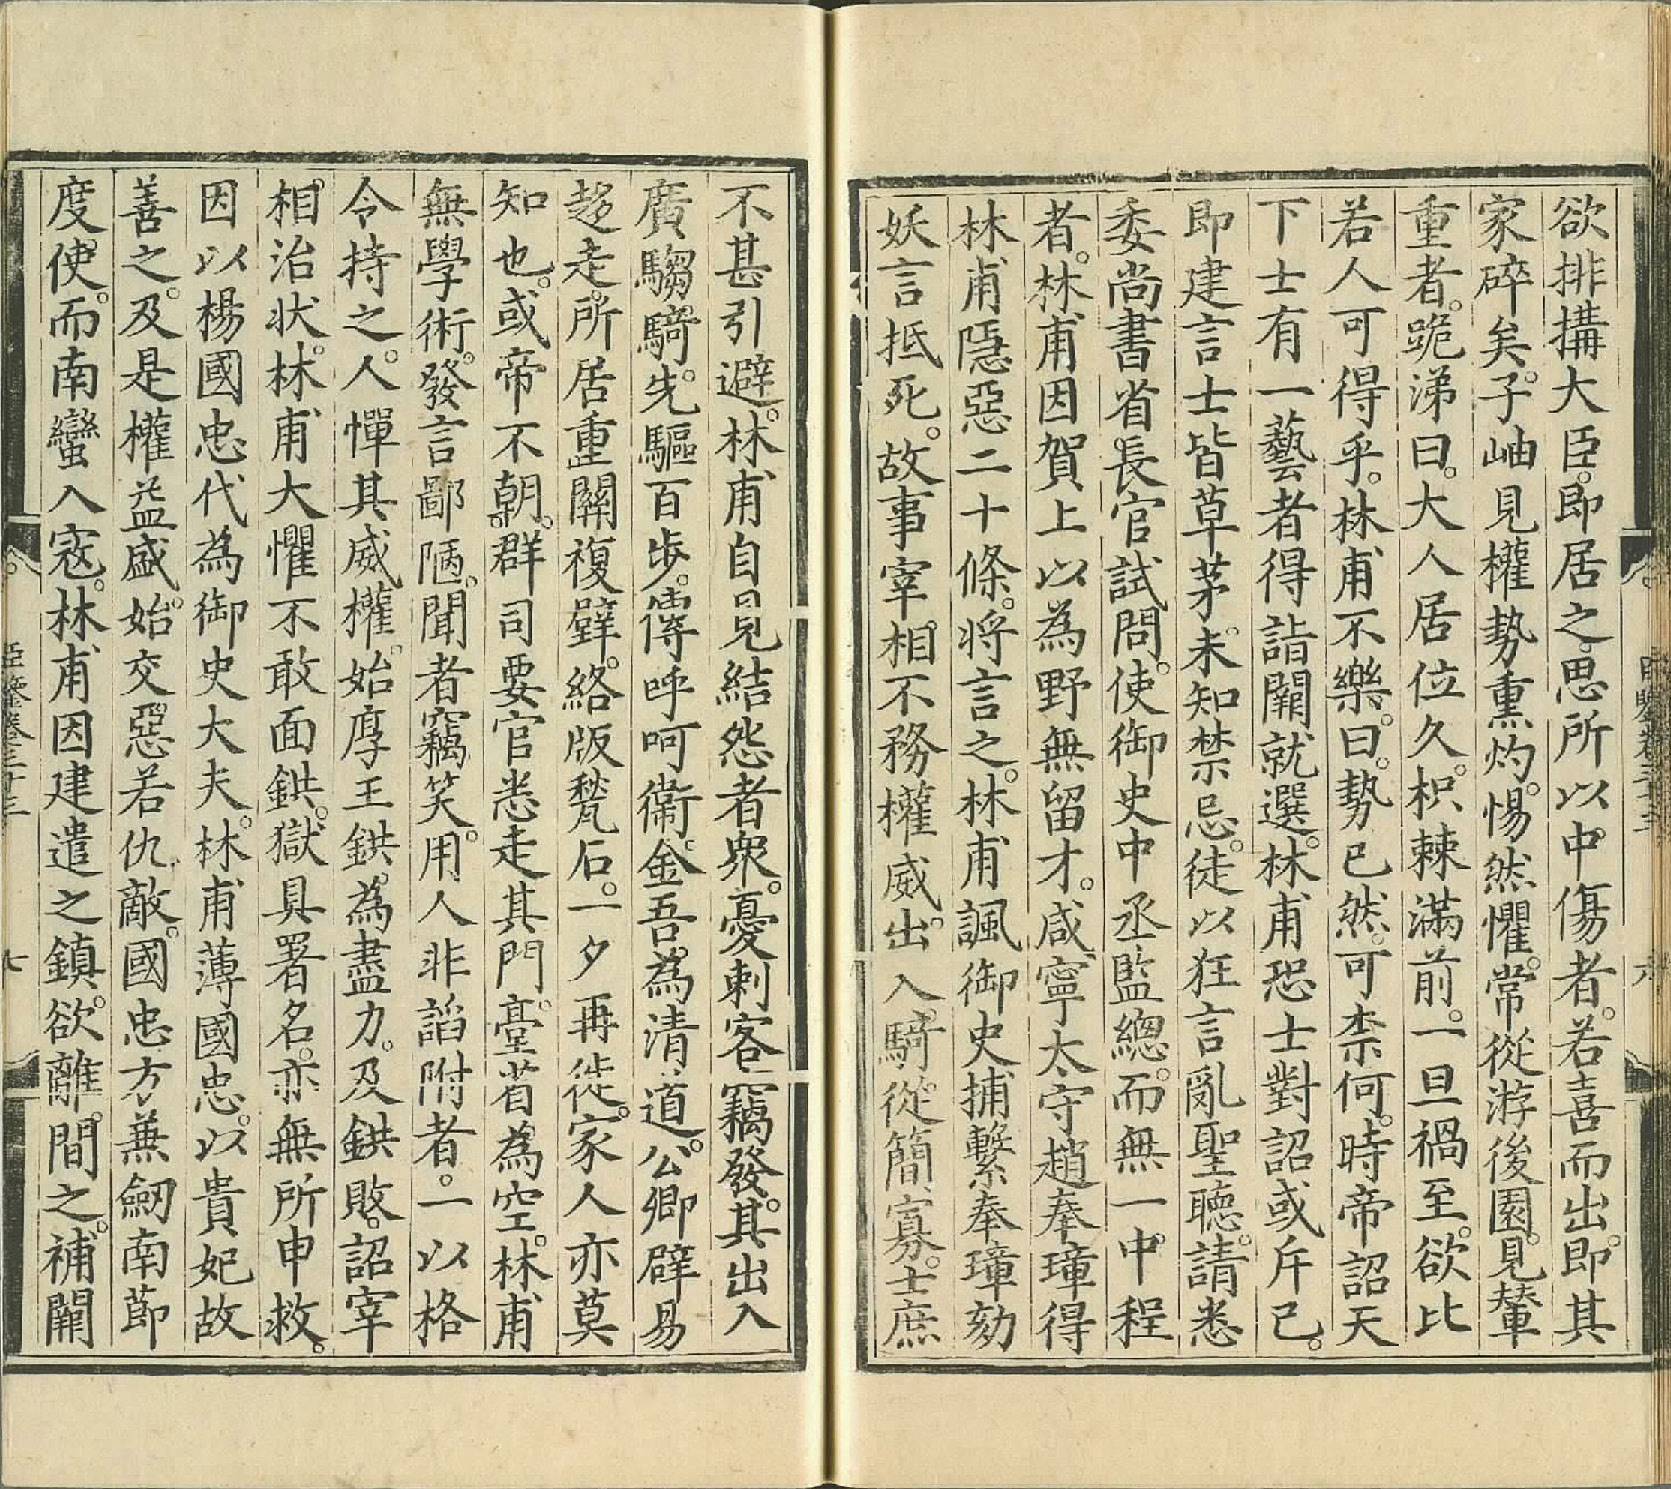 欲排搆大臣。即居之。思所以中傷者。若喜而出。即其
家碎矣。子岫。見權勢熏灼。惕然懼。常從游後園。見輦
重者。跪涕曰。大人居位久。枳棘滿前。一旦禍至。欲比
若人可得乎。林甫不樂。曰。勢已然。可柰何。時帝詔天
下士有一藝者得詣闕就選。林甫恐士對詔或斥己。
即建言士皆草茅。未知禁忌。徒以狂言亂聖聽。請悉
委尚書省長官試問。使御史中丞監總。而無一中程
者。林甫因賀上以為野無留才。咸寧太守趙奉璋得
林甫隱惡二十條。將言之。林甫諷御史捕繫奉璋劾
妖言抵死。故事宰相不務權威。出入。騎從簡寡。士庶
不甚引避。林甫自見結怨者衆。憂刺客竊發。其出入
廣騶騎。先驅百步。傳呼呵衞。金吾。為清道。公卿辟易
趍走。所居重關複壁。絡版甃石。一夕再徙。家人亦莫
知也。或帝不朝。群司要官悉走其門。臺省為空。林甫
無學術。發言鄙陋。聞者竊笑。用人非諂附者。一以格
令持之。人憚其威權。始厚王鉷。為盡力。及鉷敗。詔宰
相治狀。林甫大懼不敢面鉷。獄具署名。亦無所申救。
因以楊國忠代為御史大夫。林甫薄國忠。以貴妃故
善之。及是權益盛。始。交惡若仇敵。國忠方兼劒南節
度使。而南蠻入寇。林甫因建遣之鎮。欲離間之。補闕
臣鑒卷三十三
七